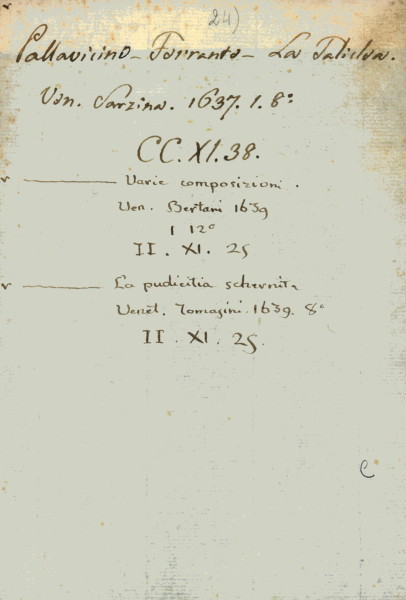 24)
Pallavicino - Ferrante - La Taliclea.
Ven. Sarzina. 1637. 1. 8º
CC. XI. 38.
Varie composizioni.
Ven. Bertani 1639
1 12º
II. XI. 25
La pudicitia schernita
Venet. Tomasini. 1639. 8º
II. XI. 25.
C